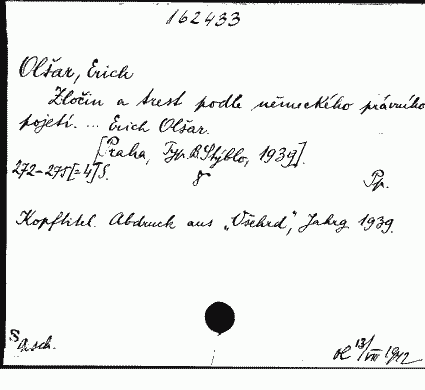 162433
Olšar, Erich
Zločin a trest podle německého právního
pojetí. ... Erich Olšar.
[Praha, Typ. B. Stýblo, 1939].
272-275[=4]S. 8°
Pp.
Kopftitel. Abdruck aus „Všehrd", Jahrg 1939.
13/VIII 1942